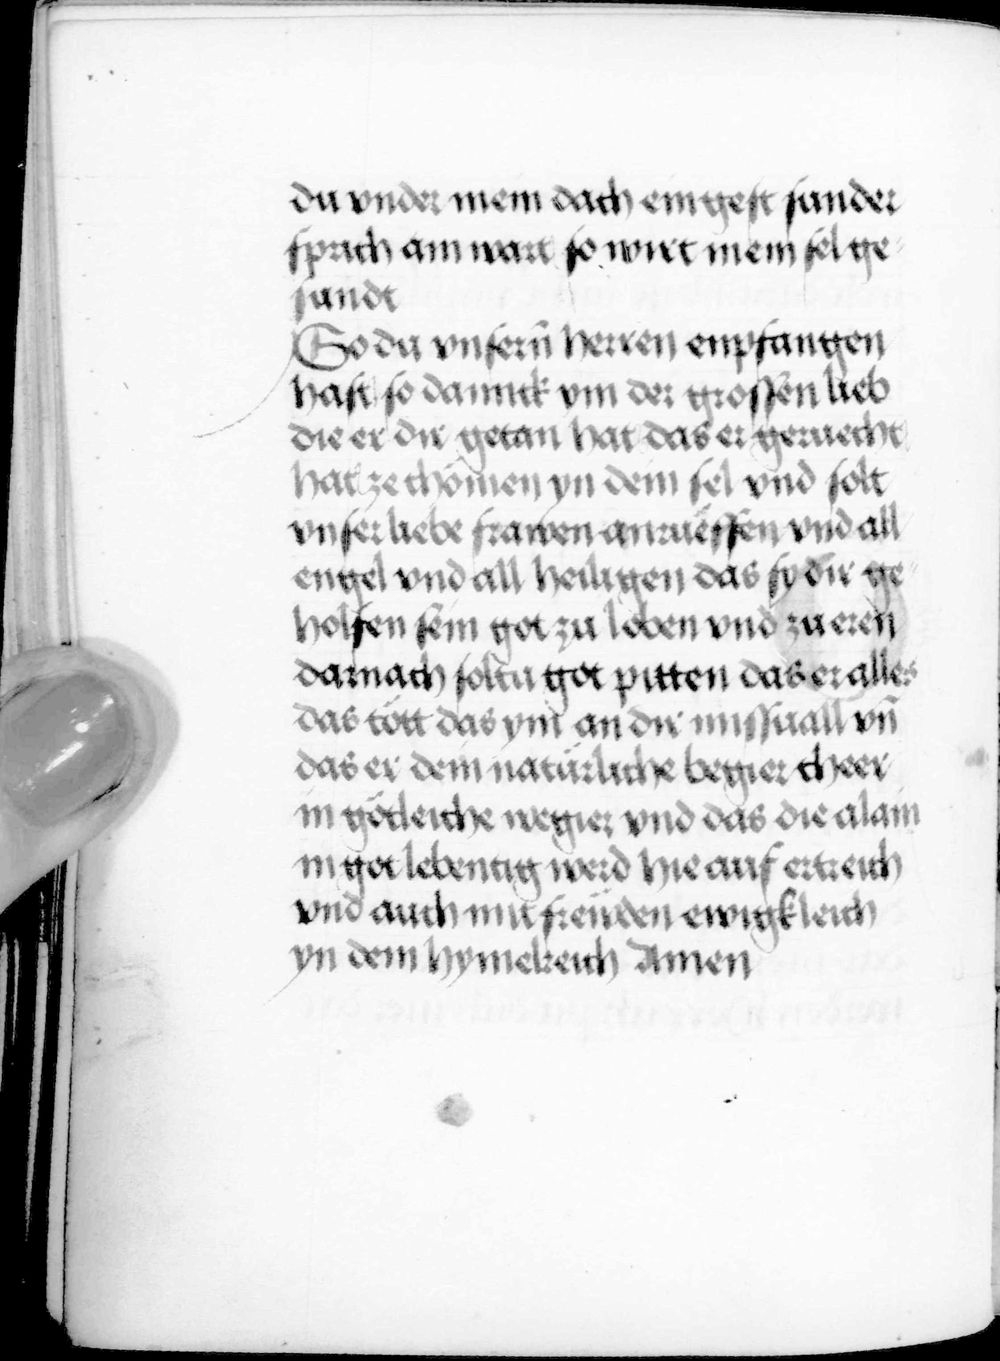 du vnder mein dach eingest sunder
sprich ain wart so wirt mein sel ge⸗
sundt
So du vnsern̄ herren enpfangen
hast so dannck ym der grossen lieb
die er dir getan hat das er geruecht
hat ze chömen yn dein sel vnd solt
vnser liebe frawen anrüeffen vnd all
engel vnd all heiligen das sy dir ge⸗
holfen sein got zu loben vnd zu eren
darnach soltu got pitten das er alles
das tött das ym an dir missuall vn̄
das er dein natürliche begier cheer
in götleiche wegier vnd das die alain
in got lebentig werd hie auf ertreich
vnd auch mit freüden ewigkleich
yn dem hymelreich Amen